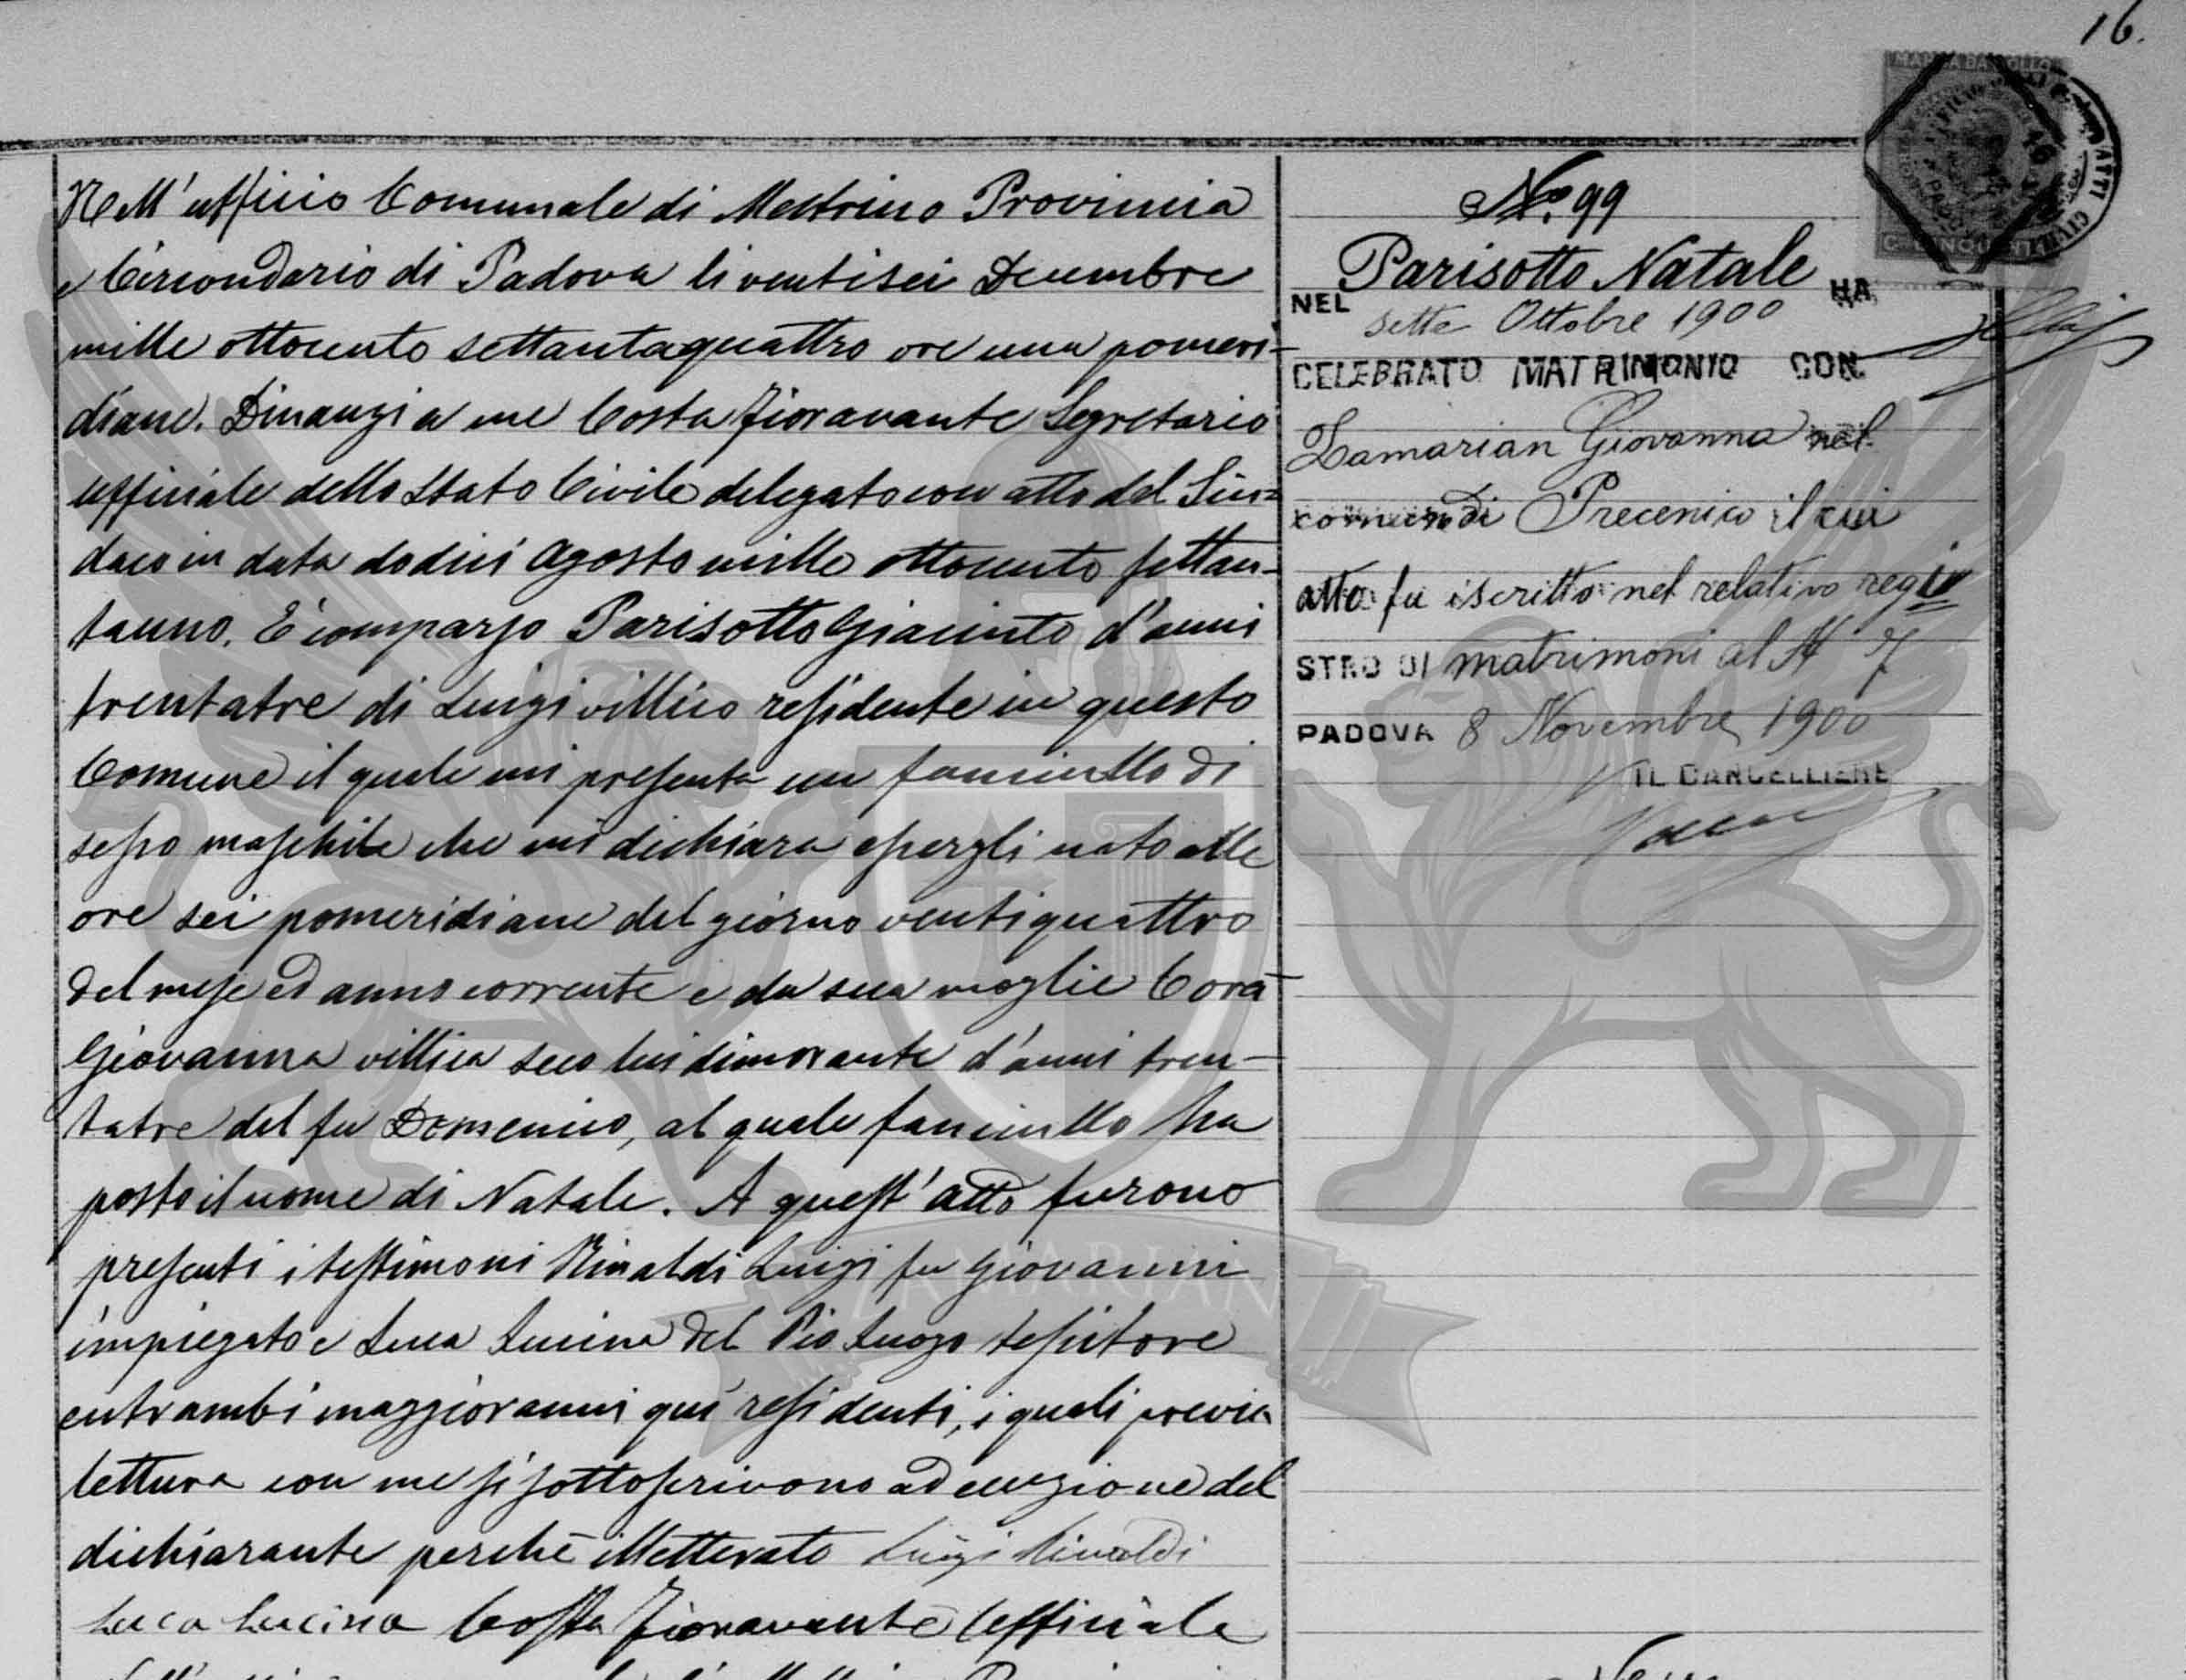 16.
MARCA DA BOLLO
C. CINQUANTA
ATTI CIVILI
Nell'ufficio Comunale di Mestrino Provincia
e Circondario di Padova li ventisei Decembre
mille ottocento settantaquattro ore una pomeri-
diane. Dinanzi a me Costa Fioravante Segretario
ufficiale dello Stato Civile delegato con atto del Sin-
daco in data dodici Agosto mille ottocento settan-
tauno. È comparso Parisotto Giacinto d'anni
trentatre di Luigi villico residente in questo
Comune il quale mi presenta un fanciullo di
sesso maschile che mi dichiara essergli nato alle
ore sei pomeridiane del giorno ventiquattro
del mese ed anno corrente e da sua moglie Corà
Giovanna villica seco lui dimorante d'anni tren-
tatre del fu Domenico, al quale fanciullo ha
posto il nome di Natale. A quest'atto furono
presenti i testimoni Rinaldi Luigi fu Giovanni
impiegato e Luca Lucina del Pio Luogo tessitore
entrambi maggioranni qui residenti, i quali previa
lettura con me si sottoscrivono ad eccezione del
dichiarante perchè illetterato Luigi Rinaldi
Luca Lucina Costa Fioravante Ufficiale
No. 99
Parisotto Natale HA
NEL sette Ottobre 1900
CELEBRATO MATRIMONIO CON
Zamarian Giovanna nel
comun di Precenico il cui
atto fu iscritto nel relativo regi
STRO DI matrimoni al N 7
PADOVA 8 Novembre 1900
IL CANCELLIERE
ZAMARIAN